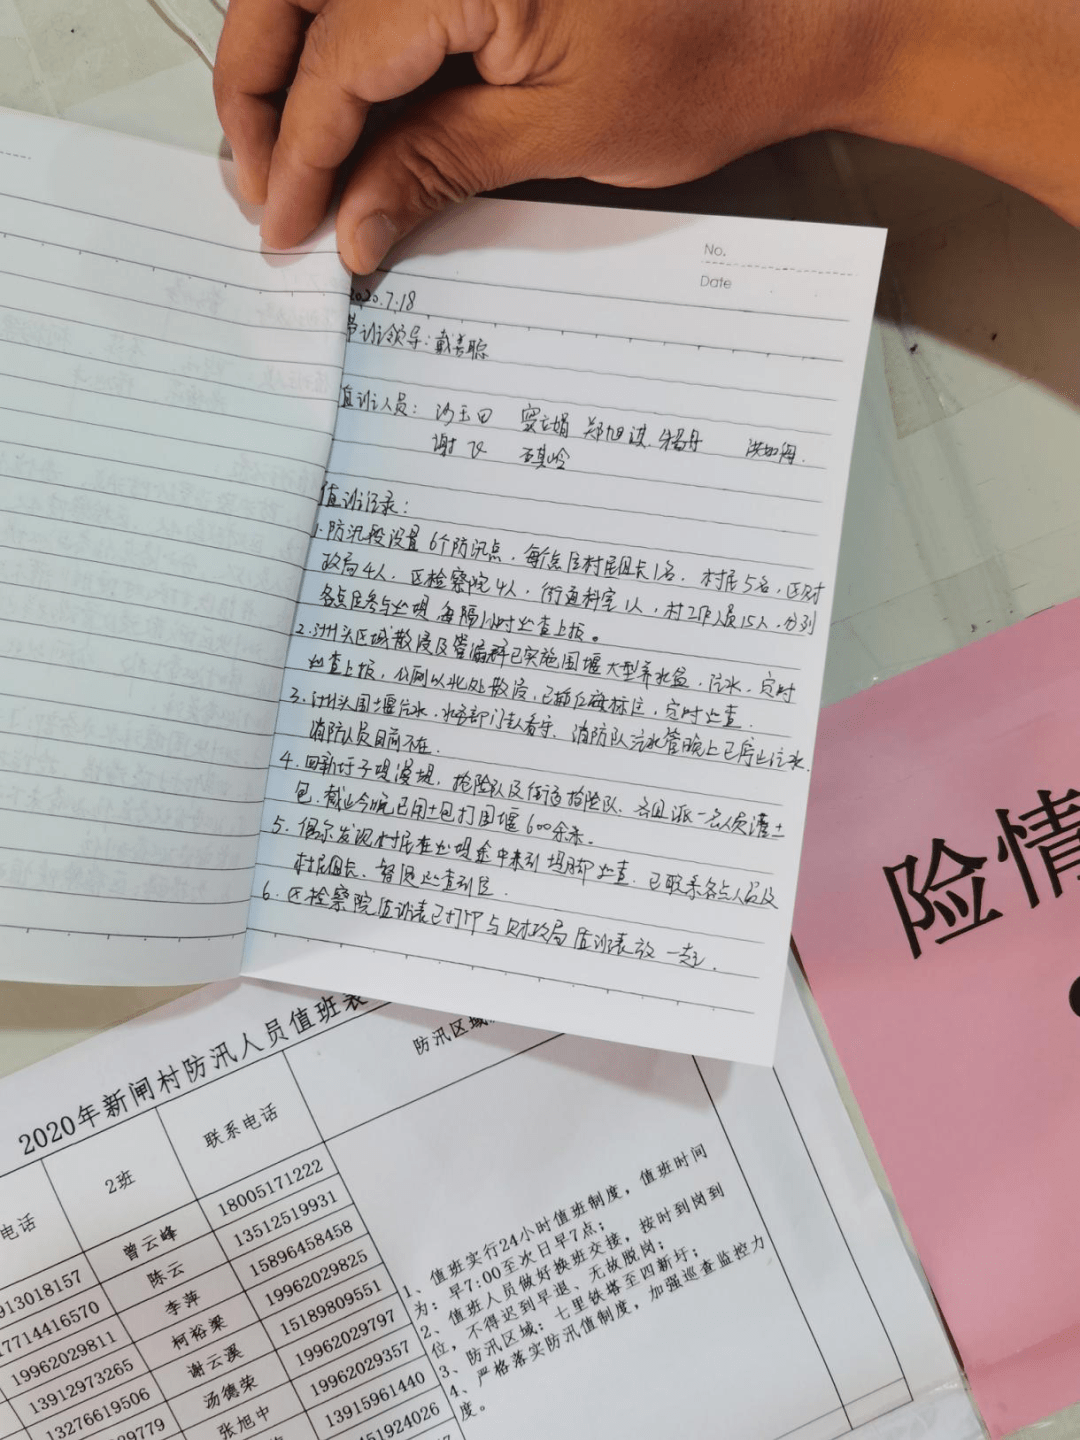 No.
Date
2020.7.18
带班领导：戴善聪
值班人员：沙玉田 窦立娟 郑旭谋 朱昌丹
谢飞
值班记录：
1.防汛段设置6个防汛点，每个点住村民组长1名，村民5名，区财
政局4人，区检察院4人，街道科室1人，村工作人员15人，分别
各点位参与巡堤，每隔1小时巡查上报。
2.洲头区域散浸及管漏群已实施围堰大型养水盆，污水，定时
巡查上报，以北处散浸，已插红旗标注，定时巡查.
3.洲头围土堰污水，水务部门专人看守，消防队污水管晚上已停止污水.
消防人员目前不在.
4.四新圩子堤漫堤，抢险队及街道抢险队，各组派一名人员灌土
包，截止今晚已用土包打围堰600余米。
5.偶尔发现村民在巡堤途中未到堤脚巡查，已联系各点人员及
村民组长，督促巡查到位.
6.区检察院值班表已打印与财政局值班表放一起.
险情
2020年新闸村防汛人员值班表
电话
2班
联系电话
防汛区域
913018157
曾云峰
18005171222
17714416570
陈云
13512519931
19962029811
李萍
15896458458
13912973265
柯裕梁
19962029825
13276619506
谢云溪
15189809551
29779
汤德荣
19962029797
张旭中
19962029357
13915961440
451924026
1、值班实行24小时值班制度，值班时间
为：早7:00至次日早7点；
2、值班人员做好换班交接，按时到岗到
位，不得迟到早退、无故脱岗；
3、防汛区域：七里铁塔至四新圩；
4、严格落实防汛值制度，加强巡查监控力
度。